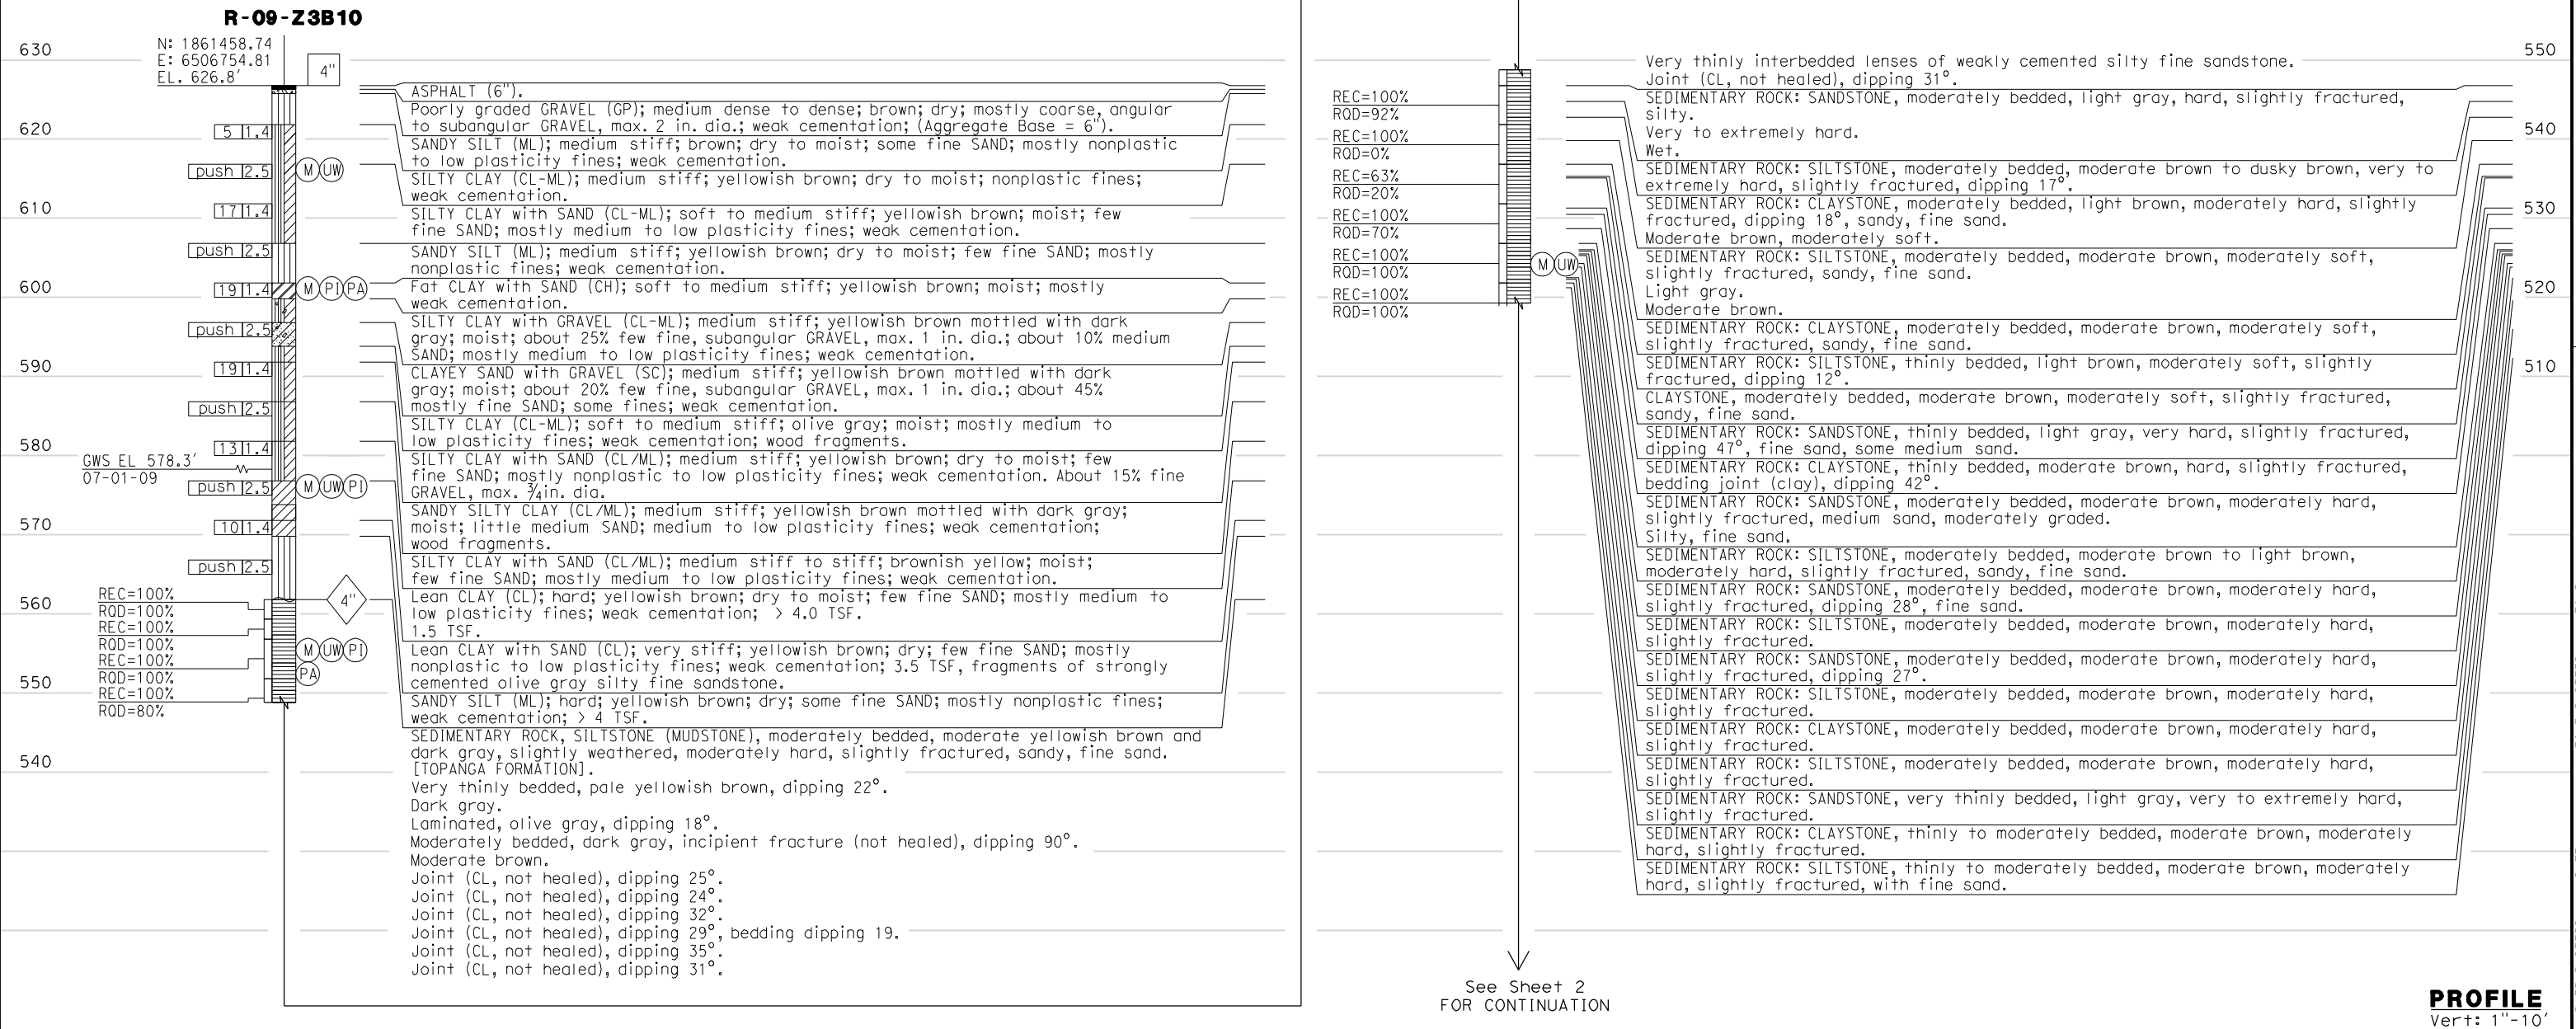 R-09-Z3B10
N: 1861458.74
E: 6506754.81
EL. 626.8'
4"
630
620
610
600
590
580
570
560
550
540
5 1.4
push 2.5
M UW
17 1.4
push 2.5
19 1.4
M PI PA
push 2.5
19 1.4
push 2.5
13 1.4
GWS EL 578.3'
07-01-09
push 2.5
M UW PI
10 1.4
push 2.5
4"
REC=100%
RQD=100%
REC=100%
RQD=100%
REC=100%
RQD=100%
REC=100%
RQD=80%
M UW PI
PA
ASPHALT (6").
Poorly graded GRAVEL (GP); medium dense to dense; brown; dry; mostly coarse, angular
to subangular GRAVEL, max. 2 in. dia.; weak cementation; (Aggregate Base = 6").
SANDY SILT (ML); medium stiff; brown; dry to moist; some fine SAND; mostly nonplastic
to low plasticity fines; weak cementation.
SILTY CLAY (CL-ML); medium stiff; yellowish brown; dry to moist; nonplastic fines;
weak cementation.
SILTY CLAY with SAND (CL-ML); soft to medium stiff; yellowish brown; moist; few
fine SAND; mostly medium to low plasticity fines; weak cementation.
SANDY SILT (ML); medium stiff; yellowish brown; dry to moist; few fine SAND; mostly
nonplastic fines; weak cementation.
Fat CLAY with SAND (CH); soft to medium stiff; yellowish brown; moist; mostly
weak cementation.
SILTY CLAY with GRAVEL (CL-ML); medium stiff; yellowish brown mottled with dark
gray; moist; about 25% few fine, subangular GRAVEL, max. 1 in. dia.; about 10% medium
SAND; mostly medium to low plasticity fines; weak cementation.
CLAYEY SAND with GRAVEL (SC); medium stiff; yellowish brown mottled with dark
gray; moist; about 20% few fine, subangular GRAVEL, max. 1 in. dia.; about 45%
mostly fine SAND; some fines; weak cementation.
SILTY CLAY (CL-ML); soft to medium stiff; olive gray; moist; mostly medium to
low plasticity fines; weak cementation; wood fragments.
SILTY CLAY with SAND (CL/ML); medium stiff; yellowish brown; dry to moist; few
fine SAND; mostly nonplastic to low plasticity fines; weak cementation. About 15% fine
GRAVEL, max. ¾in. dia.
SANDY SILTY CLAY (CL/ML); medium stiff; yellowish brown mottled with dark gray;
moist; little medium SAND; medium to low plasticity fines; weak cementation;
wood fragments.
SILTY CLAY with SAND (CL/ML); medium stiff to stiff; brownish yellow; moist;
few fine SAND; mostly medium to low plasticity fines; weak cementation.
Lean CLAY (CL); hard; yellowish brown; dry to moist; few fine SAND; mostly medium to
low plasticity fines; weak cementation; > 4.0 TSF.
1.5 TSF.
Lean CLAY with SAND (CL); very stiff; yellowish brown; dry; few fine SAND; mostly
nonplastic to low plasticity fines; weak cementation; 3.5 TSF, fragments of strongly
cemented olive gray silty fine sandstone.
SANDY SILT (ML); hard; yellowish brown; dry; some fine SAND; mostly nonplastic fines;
weak cementation; > 4 TSF.
SEDIMENTARY ROCK, SILTSTONE (MUDSTONE), moderately bedded, moderate yellowish brown and
dark gray, slightly weathered, moderately hard, slightly fractured, sandy, fine sand.
[TOPANGA FORMATION].
Very thinly bedded, pale yellowish brown, dipping 22°.
Dark gray.
Laminated, olive gray, dipping 18°.
Moderately bedded, dark gray, incipient fracture (not healed), dipping 90°.
Moderate brown.
Joint (CL, not healed), dipping 25°.
Joint (CL, not healed), dipping 24°.
Joint (CL, not healed), dipping 32°.
Joint (CL, not healed), dipping 29°, bedding dipping 19.
Joint (CL, not healed), dipping 35°.
Joint (CL, not healed), dipping 31°.
REC=100%
RQD=92%
REC=100%
RQD=0%
REC=63%
RQD=20%
REC=100%
RQD=70%
REC=100%
RQD=100%
REC=100%
RQD=100%
M UW
Very thinly interbedded lenses of weakly cemented silty fine sandstone.
Joint (CL, not healed), dipping 31°.
SEDIMENTARY ROCK: SANDSTONE, moderately bedded, light gray, hard, slightly fractured,
silty.
Very to extremely hard.
Wet.
SEDIMENTARY ROCK: SILTSTONE, moderately bedded, moderate brown to dusky brown, very to
extremely hard, slightly fractured, dipping 17°.
SEDIMENTARY ROCK: CLAYSTONE, moderately bedded, light brown, moderately hard, slightly
fractured, dipping 18°, sandy, fine sand.
Moderate brown, moderately soft.
SEDIMENTARY ROCK: SILTSTONE, moderately bedded, moderate brown, moderately soft,
slightly fractured, sandy, fine sand.
Light gray.
Moderate brown.
SEDIMENTARY ROCK: CLAYSTONE, moderately bedded, moderate brown, moderately soft,
slightly fractured, sandy, fine sand.
SEDIMENTARY ROCK: SILTSTONE, thinly bedded, light brown, moderately soft, slightly
fractured, dipping 12°.
CLAYSTONE, moderately bedded, moderate brown, moderately soft, slightly fractured,
sandy, fine sand.
SEDIMENTARY ROCK: SANDSTONE, thinly bedded, light gray, very hard, slightly fractured,
dipping 47°, fine sand, some medium sand.
SEDIMENTARY ROCK: CLAYSTONE, thinly bedded, moderate brown, hard, slightly fractured,
bedding joint (clay), dipping 42°.
SEDIMENTARY ROCK: SANDSTONE, moderately bedded, moderate brown, moderately hard,
slightly fractured, medium sand, moderately graded.
Silty, fine sand.
SEDIMENTARY ROCK: SILTSTONE, moderately bedded, moderate brown to light brown,
moderately hard, slightly fractured, sandy, fine sand.
SEDIMENTARY ROCK: SANDSTONE, moderately bedded, moderate brown, moderately hard,
slightly fractured, dipping 28°, fine sand.
SEDIMENTARY ROCK: SILTSTONE, moderately bedded, moderate brown, moderately hard,
slightly fractured.
SEDIMENTARY ROCK: SANDSTONE, moderately bedded, moderate brown, moderately hard,
slightly fractured, dipping 27°.
SEDIMENTARY ROCK: SILTSTONE, moderately bedded, moderate brown, moderately hard,
slightly fractured.
SEDIMENTARY ROCK: CLAYSTONE, moderately bedded, moderate brown, moderately hard,
slightly fractured.
SEDIMENTARY ROCK: SILTSTONE, moderately bedded, moderate brown, moderately hard,
slightly fractured.
SEDIMENTARY ROCK: SANDSTONE, very thinly bedded, light gray, very to extremely hard,
slightly fractured.
SEDIMENTARY ROCK: CLAYSTONE, thinly to moderately bedded, moderate brown, moderately
hard, slightly fractured.
SEDIMENTARY ROCK: SILTSTONE, thinly to moderately bedded, moderate brown, moderately
hard, slightly fractured, with fine sand.
550
540
530
520
510
See Sheet 2
FOR CONTINUATION
PROFILE
Vert: 1"-10'